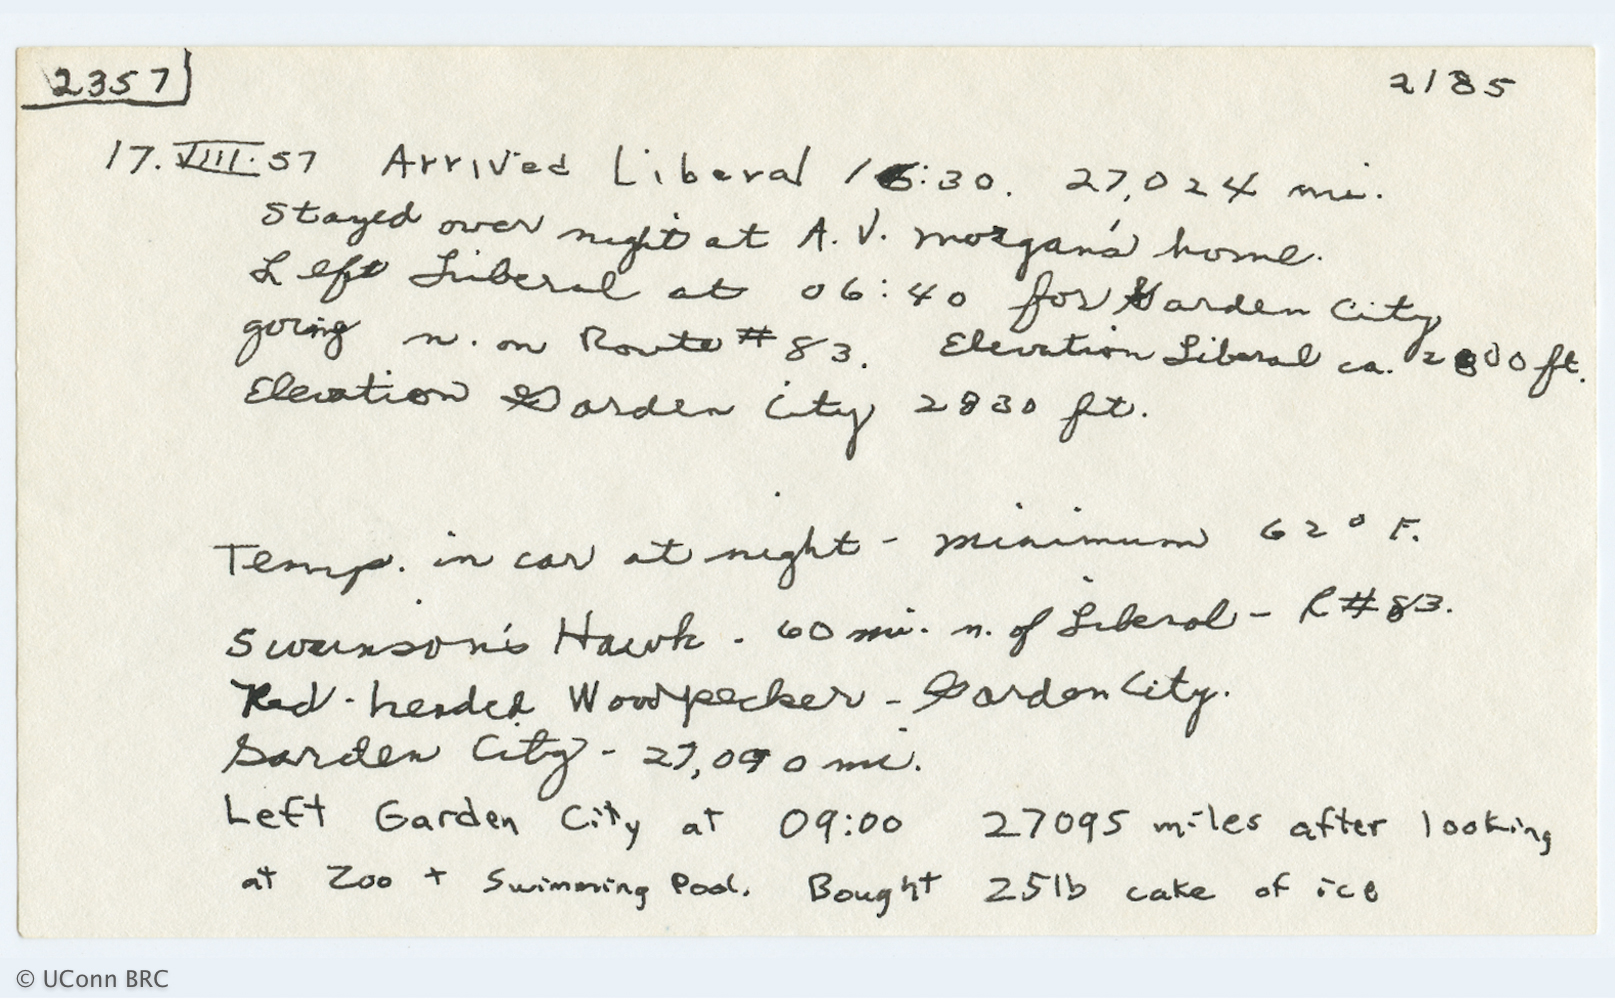 2357
2185
17.VIII.57 Arrived Liberal 16:30. 27,024 mi.
Stayed over night at A. V. Morgan's home.
Left Liberal at 06:40 for Garden City
going n. on Route #83. Elevation Liberal ca. 2800 ft.
Elevation Garden City 2830 ft.
Temp. in car at night - minimum 62° F.
Swainson's Hawk - 60 mi. n. of Liberal - R#83.
Red-headed Woodpecker - Garden City.
Garden City - 27,090 mi.
Left Garden City at 09:00 27095 miles after looking
at Zoo + Swimming Pool. Bought 25lb cake of ice
© UConn BRC